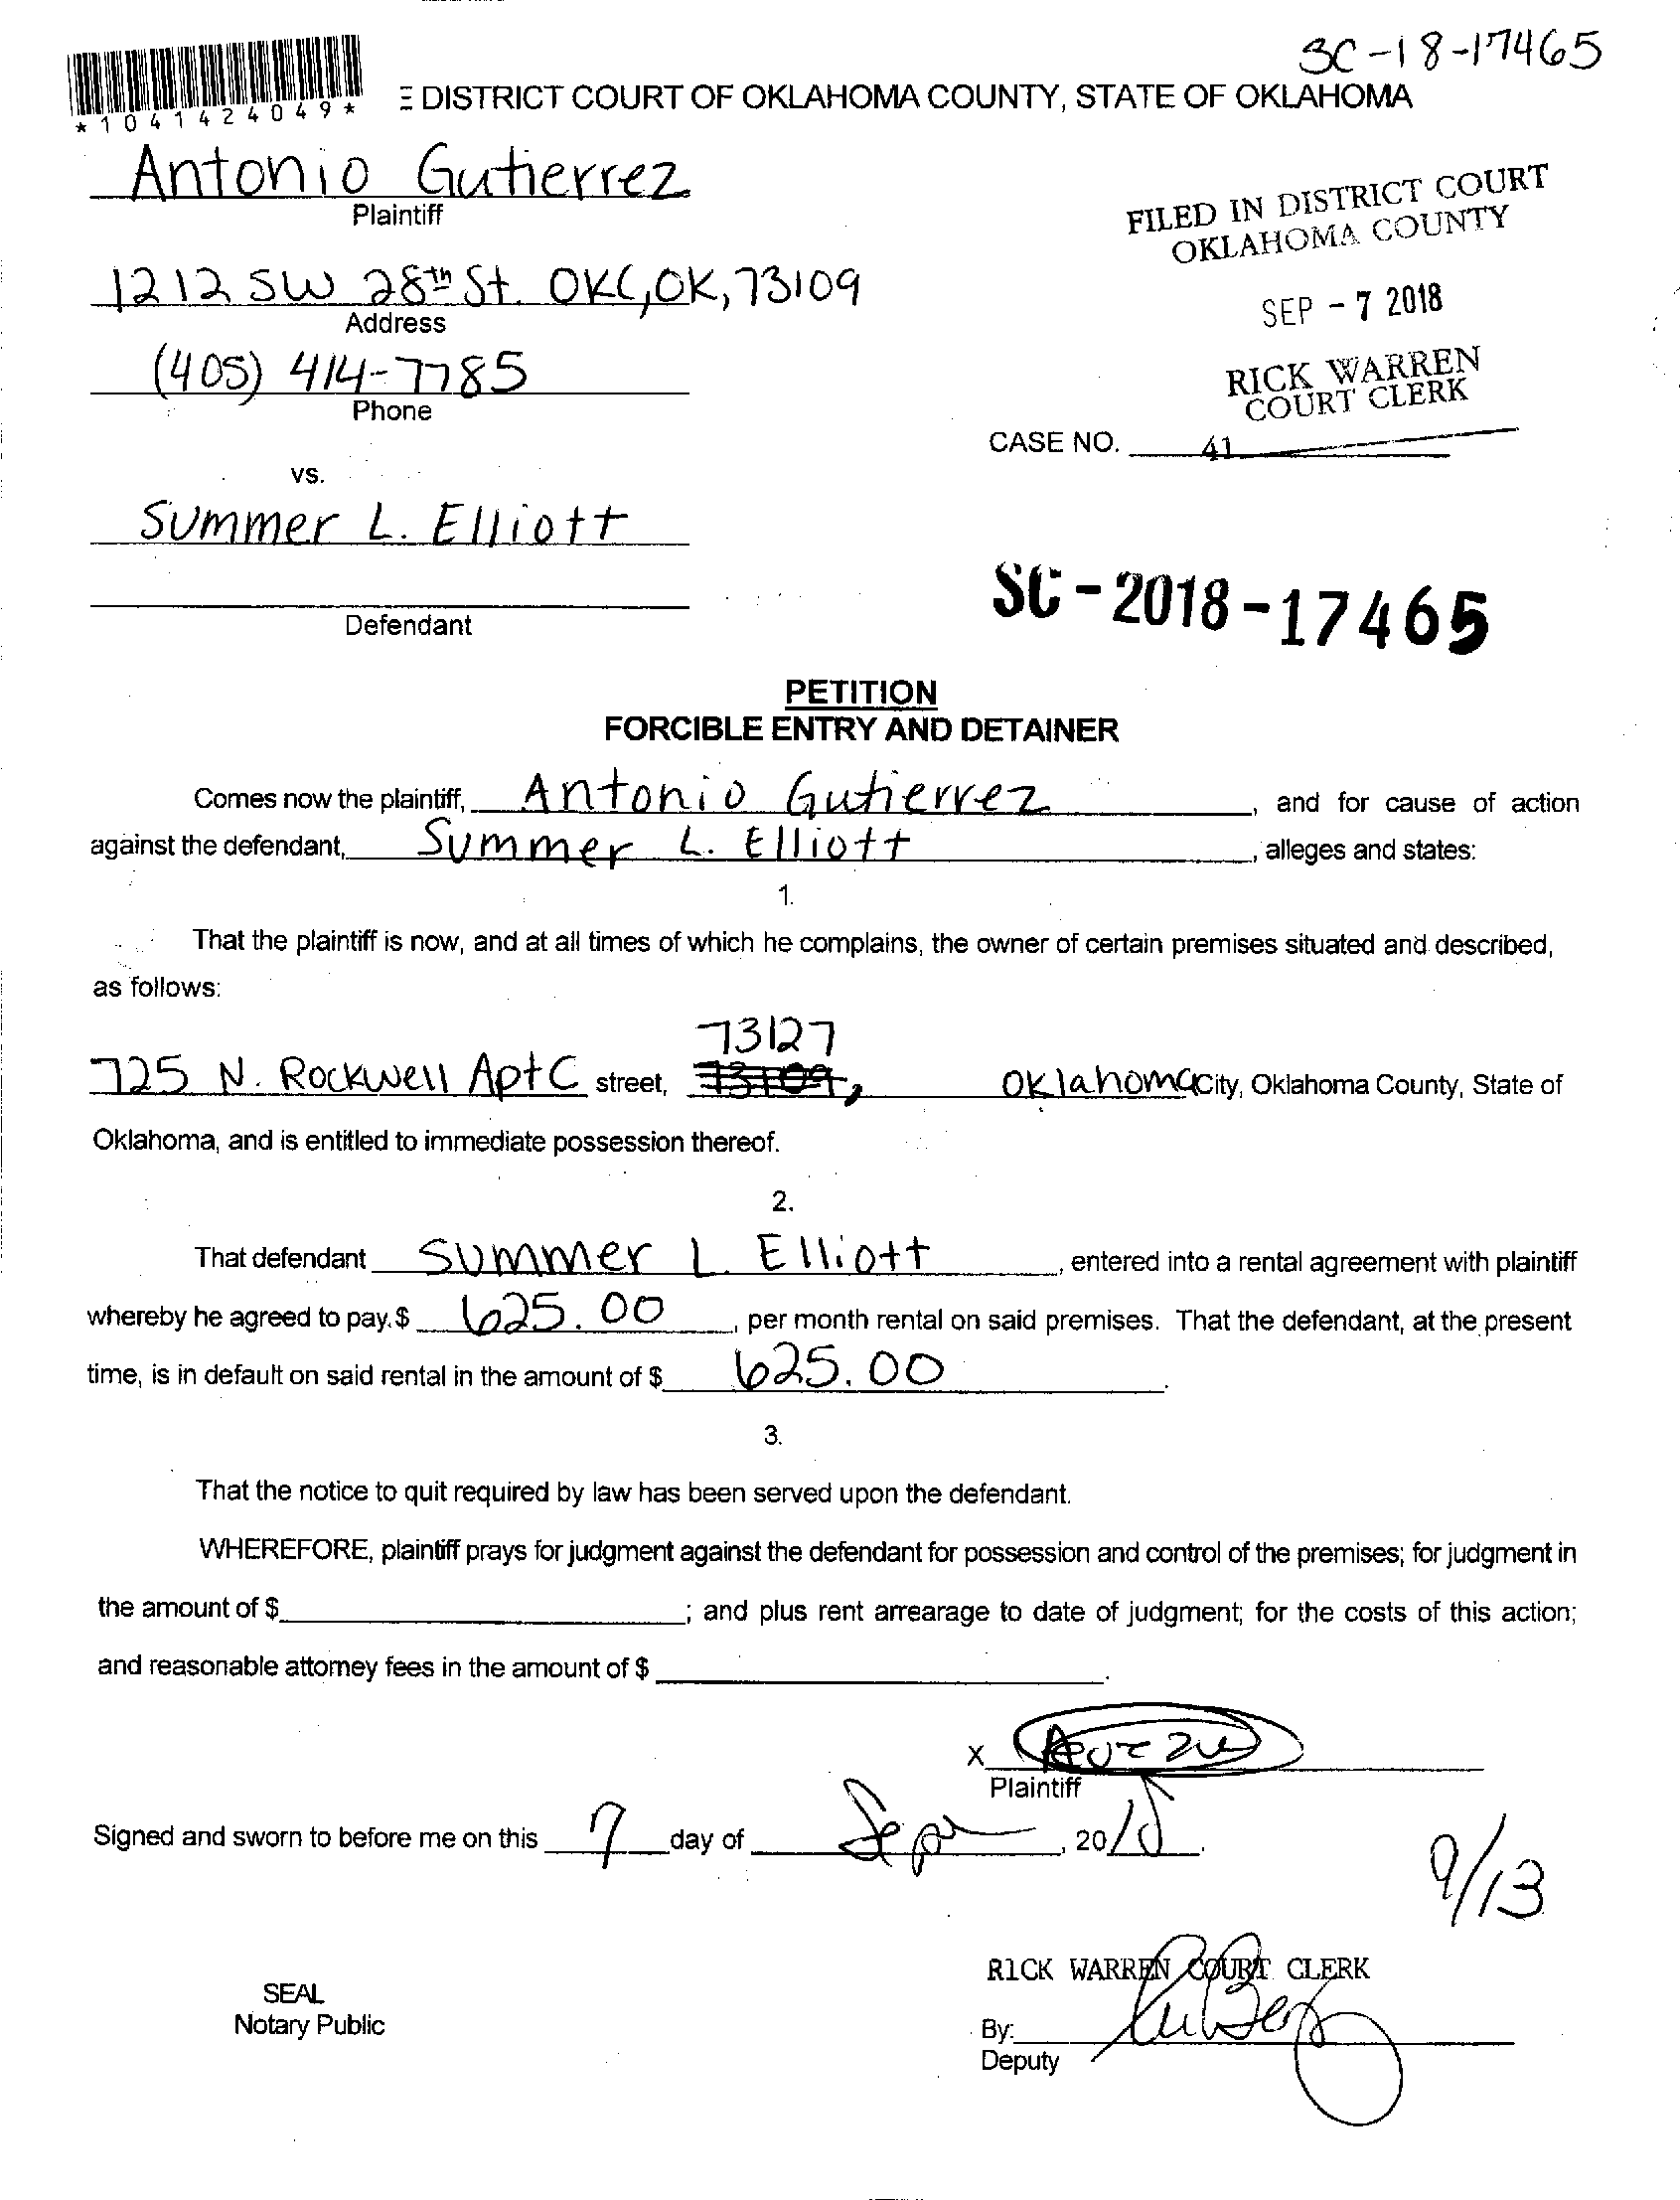 SC-18-17465
*1041424049*
E DISTRICT COURT OF OKLAHOMA COUNTY, STATE OF OKLAHOMA
Antonio Gutierrez
Plaintiff
FILED IN DISTRICT COURT
OKLAHOMA COUNTY
1212 SW 28th St. OKC, OK, 73109
Address
SEP - 7 2018
(405) 414-7785
Phone
RICK WARREN
COURT CLERK
CASE NO. 41
vs.
Summer L. Elliott
Defendant
SC-2018-17465
PETITION
FORCIBLE ENTRY AND DETAINER
Comes now the plaintiff, Antonio Gutierrez, and for cause of action
against the defendant, Summer L. Elliott, alleges and states:
1.
That the plaintiff is now, and at all times of which he complains, the owner of certain premises situated and described,
as follows:
73127
725 N. Rockwell Apt C street, 73109, Oklahoma City, Oklahoma County, State of
Oklahoma, and is entitled to immediate possession thereof.
2.
That defendant Summer L. Elliott, entered into a rental agreement with plaintiff
whereby he agreed to pay $ 625.00, per month rental on said premises. That the defendant, at the present
time, is in default on said rental in the amount of $ 625.00.
3.
That the notice to quit required by law has been served upon the defendant.
WHEREFORE, plaintiff prays for judgment against the defendant for possession and control of the premises; for judgment in
the amount of $ ; and plus rent arrearage to date of judgment; for the costs of this action;
and reasonable attorney fees in the amount of $ .
X
Plaintiff
Signed and sworn to before me on this 7 day of Sep, 2018.
9/13
RICK WARREN COURT CLERK
SEAL
Notary Public
By:
Deputy